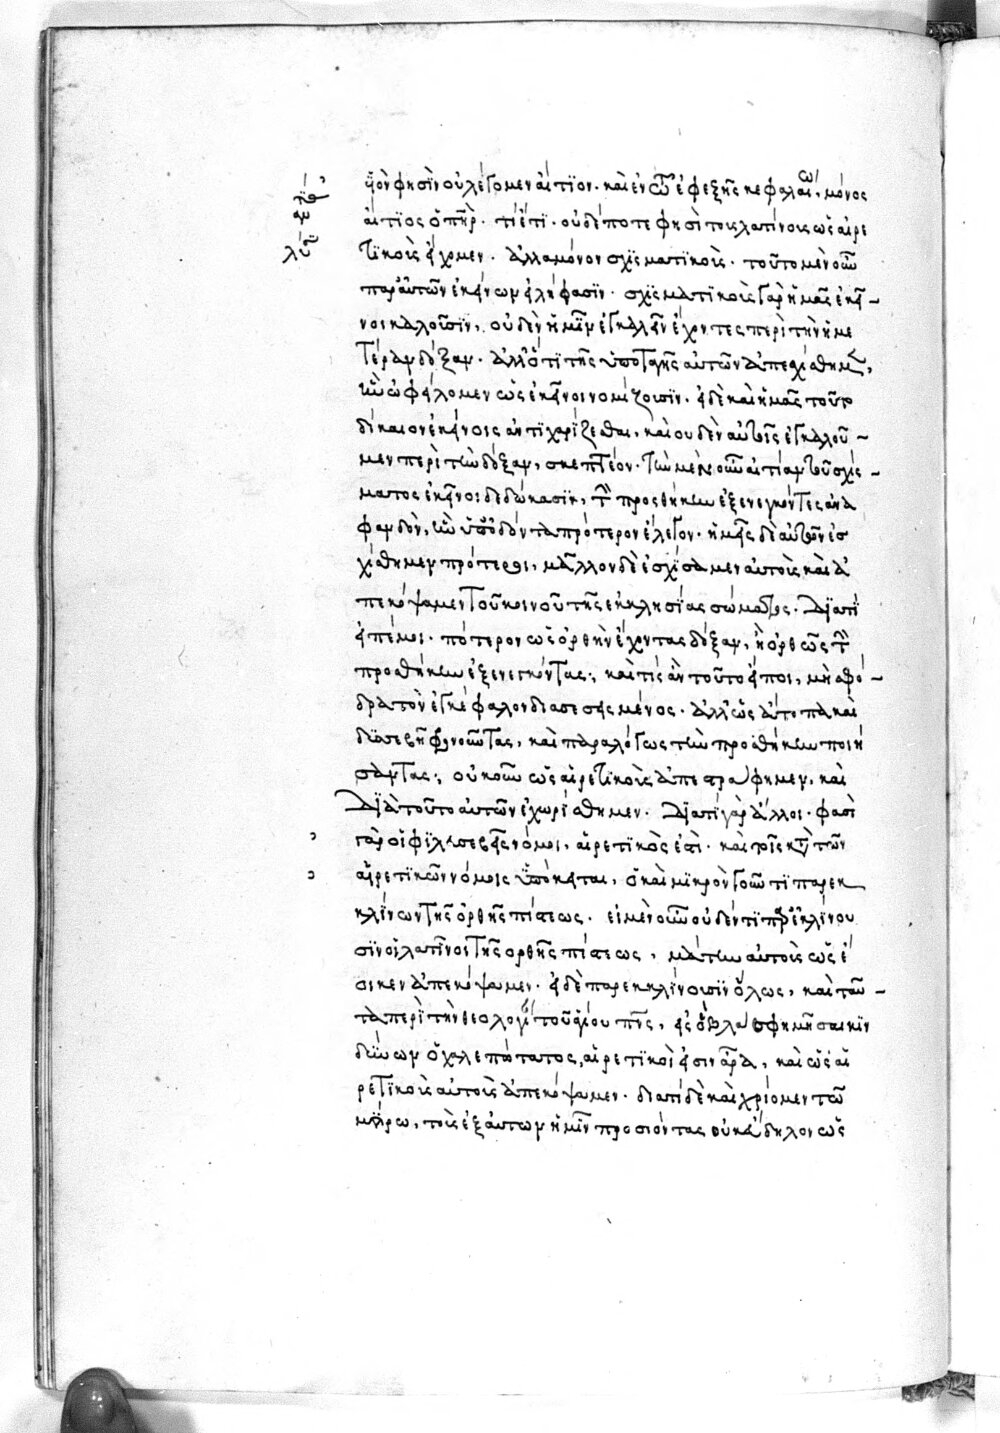 υἱὸν φησὶν οὐ λέγομεν αἴτιον. καὶ ἐν τῶ ἐφεξῆς κεφαλαίω, μόνος
αἴτιος ὁ πῆρ. τί ἔτι. οὐδέποτε φησὶ τοῖς λατίνοις ὡς αἱρε
τικοῖς εἴχομεν. ἀλλὰ μόνον σχισματικοῖς. τοῦτο μὲν οὖν
παρ' αὐτῶν ἐκείνων εἰλήφασιν. σχισματικοὺς γὰρ ἡμᾶς ἐκεῖ-
νοι καλοῦσιν, οὐδὲν ἡμῖν ἐγκαλεῖν ἔχοντες περὶ τὴν ἡμε
τέραν δόξαν. ἀλλ' ὅτι τῆς ὑποταγῆς αὐτῶν ἀπεσχίσθημεν,
ἣν ὠφείλομεν ὡς ἐκεῖνοι νομίζουσιν. εἰ δὲ καὶ ἡμᾶς τοῦτο
δίκαιον ἐκείνοις ἀντιχαρίζεσθαι, καὶ οὐδὲν αὐτοῖς ἐγκαλοῦ-
μεν περὶ τὴν δόξαν, σκεπτέον. τὴν μὲν οὖν αἰτίαν τοῦ σχίσ-
ματος ἐκεῖνοι δεδώκασιν, τὴν προσθήκην ἐξενεγκόντες ἀνα
φανδὸν, ἣν ὑπ' ὀδόντα πρότερον ἔλεγον. ἡμεῖς δὲ αὐτῶν ἐσ
χίσθημεν πρότεροι, μᾶλλον δὲ ἐσχίσαμεν αὐτοὺς καὶ ἀ
πεκόψαμεν τοῦ κοινοῦ τῆς ἐκκλησίας σώματος. διατί
εἰπέ μοι. πότερον ὡς ὀρθὴν ἔχοντας δόξαν, ἢ ὀρθῶς τὴν
προσθήκην ἐξενεγκόντας; καὶ τίς ἂν τοῦτο εἴποι, μὴ σφό-
δρα τὸν ἐγκέφαλον διασεσεισμένος. ἀλλ' ὡς ἄτοπα καὶ
δυσσεβῆ φρονοῦντας, καὶ παραλόγως τὴν προσθήκην ποιή
σαντας; οὐκοῦν ὡς αἱρετικοὺς ἀπεστράφημεν, καὶ
διὰ τοῦτο αὐτῶν ἐχωρίσθημεν. διατί γὰρ ἄλλο. φασὶ
γὰρ οἱ φιλευσεβεῖς νόμοι, αἱρετικὸς ἐστὶ. καὶ τοῖς κατὰ τῶν
αἱρετικῶν νόμοις ὑπόκειται, ὁ καὶ μικρὸν γοῦν τι παρεκ
κλίνων τῆς ὀρθῆς πίστεως. εἰ μὲν οὖν οὐδέν τι παρεκκλίνου
σιν οἱ λατῖνοι τῆς ὀρθῆς πίστεως, μάτην αὐτοὺς ὡς ἔ
οικεν ἀπεκόψαμεν. εἰ δὲ παρεκκλίνουσιν ὅλως, καὶ ταῦ-
τα περὶ τὴν θεολογίαν τοῦ ἁγίου πνς, εἰς ὃ βλασφημῆσαι κίν
δύνων ὁ χαλεπώτατος, αἱρετικοὶ εἰσὶν ἄρα, καὶ ὡς αἱ
ρετικοὺς αὐτοὺς ἀπεκόψαμεν. διατί δὲ καὶ χρίομεν τῶ
μύρω, τοὺς ἐξ αὐτῶν ἡμῖν προσιόντας οὐκ εὔδηλον ὡς